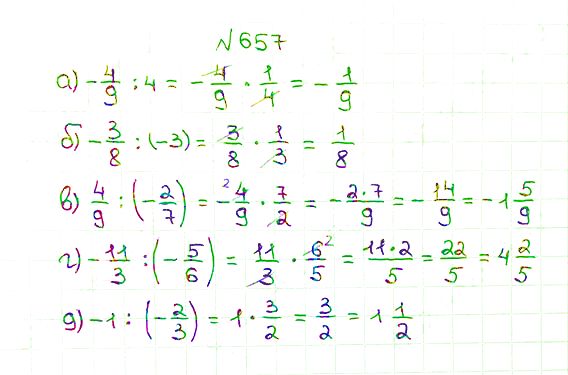 №657
а) -4/9 : 4 = -4/9 · 1/4 = -1/9
б) -3/8 : (-3) = 3/8 · 1/3 = 1/8
в) 4/9 : (-2/7) = -²4/9 · 7/2 = -2·7/9 = -14/9 = -1 5/9
г) -11/3 : (-5/6) = 11/3 · 6²/5 = 11·2/5 = 22/5 = 4 2/5
д) -1 : (-2/3) = 1 · 3/2 = 3/2 = 1 1/2